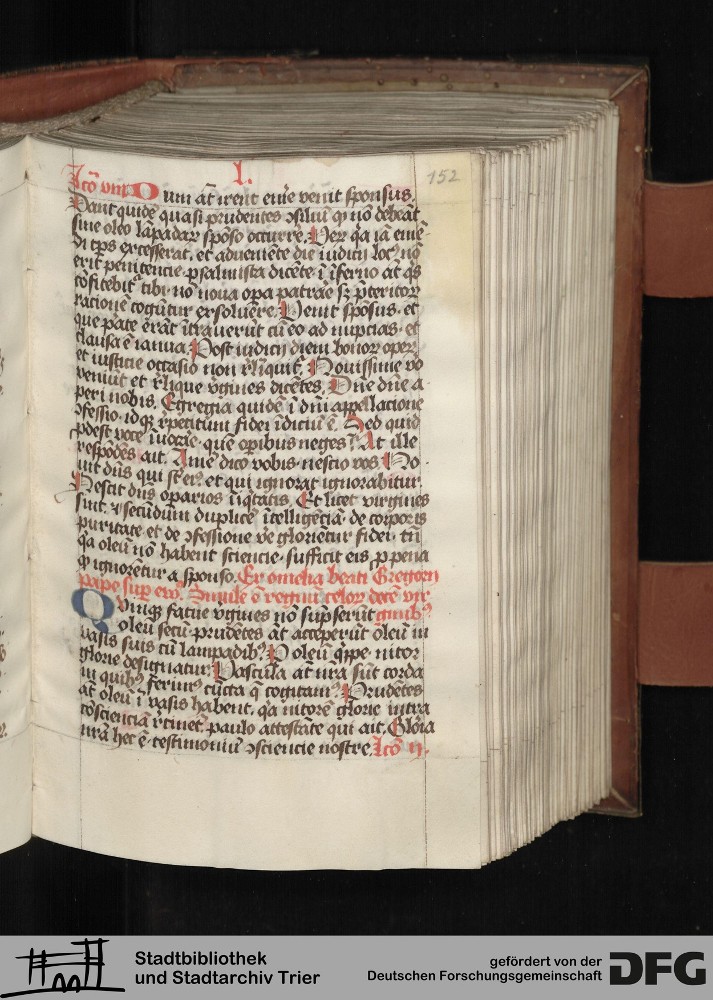 l.
152
Lco̅ viij Dum at̅ irent eme̅ venit sponsus.
Dant quide̅ quasi prudentes ꝯsiliu̅ qꝫ no̅ debea̅t
sine oleo la̅padaꝝ spo̅so occurre. Veꝝ qa ia̅ eme̅
di tp̅s excesserat. et advenie̅te die iudicij loc9 no̅
erit penitencie. psalmista dice̅te. i̅ i̅ferno at̅ q̅s
co̅fitebit͛ tibi. no̅ nova op̅a pat̅rae sꝫ p̅teritoꝝ
racione̅ cogu̅tur exsolvere. Venit spo̅sus. et
que p̅ate era̅t i̅traveru̅t cu̅ eo ad nuptias. et
clausa e̅ ianua. Post iudicij diem bonoꝝ opeꝝ
et iusticie occasio non r̅li̅quit͛. Novissime vo
veniu̅t et r̅lique v̅gines dice̅tes. Dn̅e dn̅e a
peri nobis. Egregia quide̅ i̅ dn̅i appellacione
ꝯfessio. idqꝫ r̅petitum fidei i̅diciu̅ e̅. Sed quid
p̅dest voce i̅vocare. que̅ op̅ibus neges? At ille
respo̅de̅s ait. Ame̅ dico vobis. nescio vos. No
vit dn̅s qui s̅t ei9. et qui ignorat ignorabitur.
Nescit dn̅s op̅arios i̅iq̅tatis. Et licet virgines
sint. et secu̅du̅m duplice̅ i̅telligencia̅. de corporis
puritate. et de ꝯfessione v̅e glorie̅tur fidei. tn̅
qa oleu̅ no̅ habent sciencie. sufficit eis p̅ pena
qꝫ ignore̅tur a sponso. Ex omelia beati Gregorij
pape sup̅ ew̅. Simile e̅ regnu̅ celoꝝ dece̅ vir
Quinqꝫ fatue v̅gines no̅ sup̅seru̅t ginib9.
oleu̅ secu̅. prude̅tes at̅ acceperu̅t oleu̅ in
vasis suis cu̅ lampadib9. P oleu̅ q̅ipe. nitor
glorie designatur. Vascula at̅ n̅ra su̅t corda
in quib9 ferim9 cu̅cta q̅ cogitam9. Prude̅tes
at̅ oleu̅ i̅ vasis habent. qa nitore̅ glorie intra
co̅sciencia̅ r̅tinet. paulo attesta̅te qui ait. Gl̅oia
n̅ra̅ hec e̅. testimoniu̅ ꝯsciencie nostre. Lco̅ ij.
Stadtbibliothek
und Stadtarchiv Trier
gefördert von der
Deutschen Forschungsgemeinschaft DFG